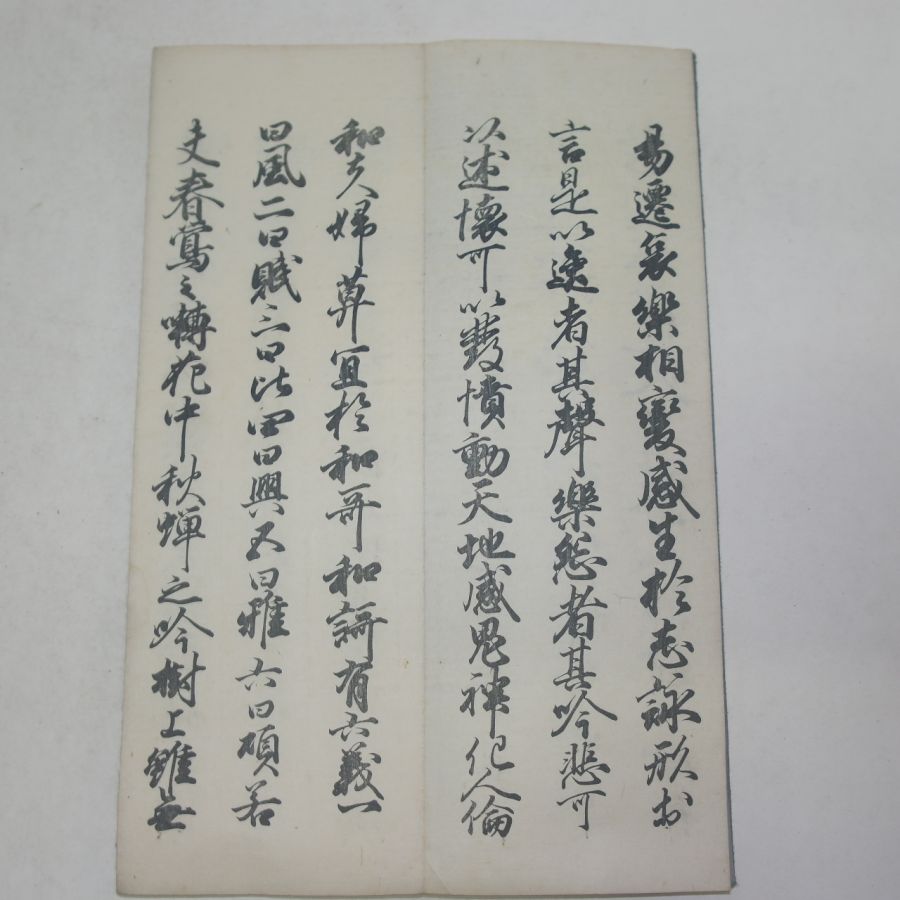 易遷哀樂相變感生於志詠形於
言是以逸者其聲樂怨者其吟悲可
以述懷可以發憤動天地感鬼神化人倫
和夫婦莫宜於和哥和謌有六義一
曰風二曰賦三曰比四曰興五曰雅六曰頌若
夫春鶯之囀花中秋蟬之吟樹上雖無